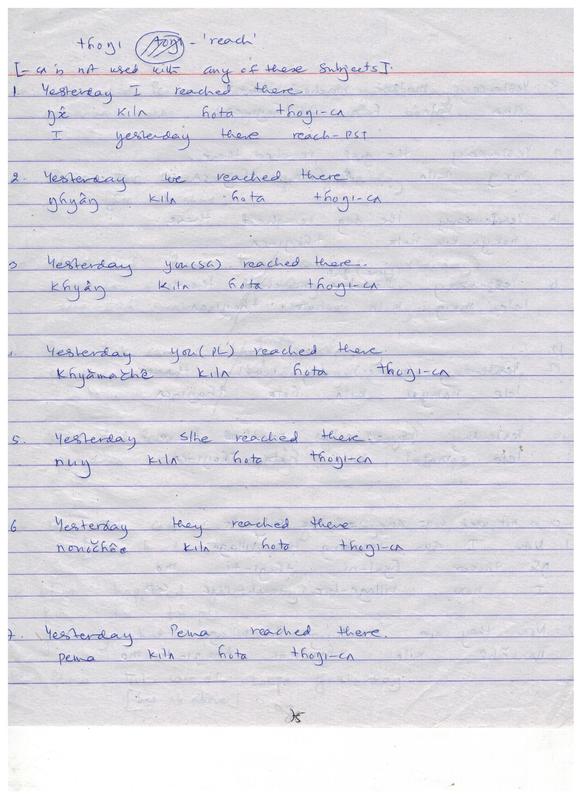 thoŋı - 'reach'
[-cʌ is not used with any of these subjects].
1 Yesterday I reached there
ŋʌ̂ kılʌ ɦota thoŋı-cʌ
I yesterday there reach-PST
2. Yesterday we reached there
ŋhyâŋ kılʌ ɦota thoŋı-cʌ
Yesterday you(SG) reached there..
khyâŋ kılʌ ɦota thoŋı-cʌ
Yesterday you(PL) reached there
khyămačhê kılʌ ɦota thoŋı-cʌ
5. Yesterday s/he reached there.
nuŋ kılʌ ɦota thoŋı-cʌ
6 Yesterday they reached there
kılʌ ɦota thoŋı-cʌ
7. Yesterday Pema reached there.
pema kılʌ ɦota thoŋı-cʌ